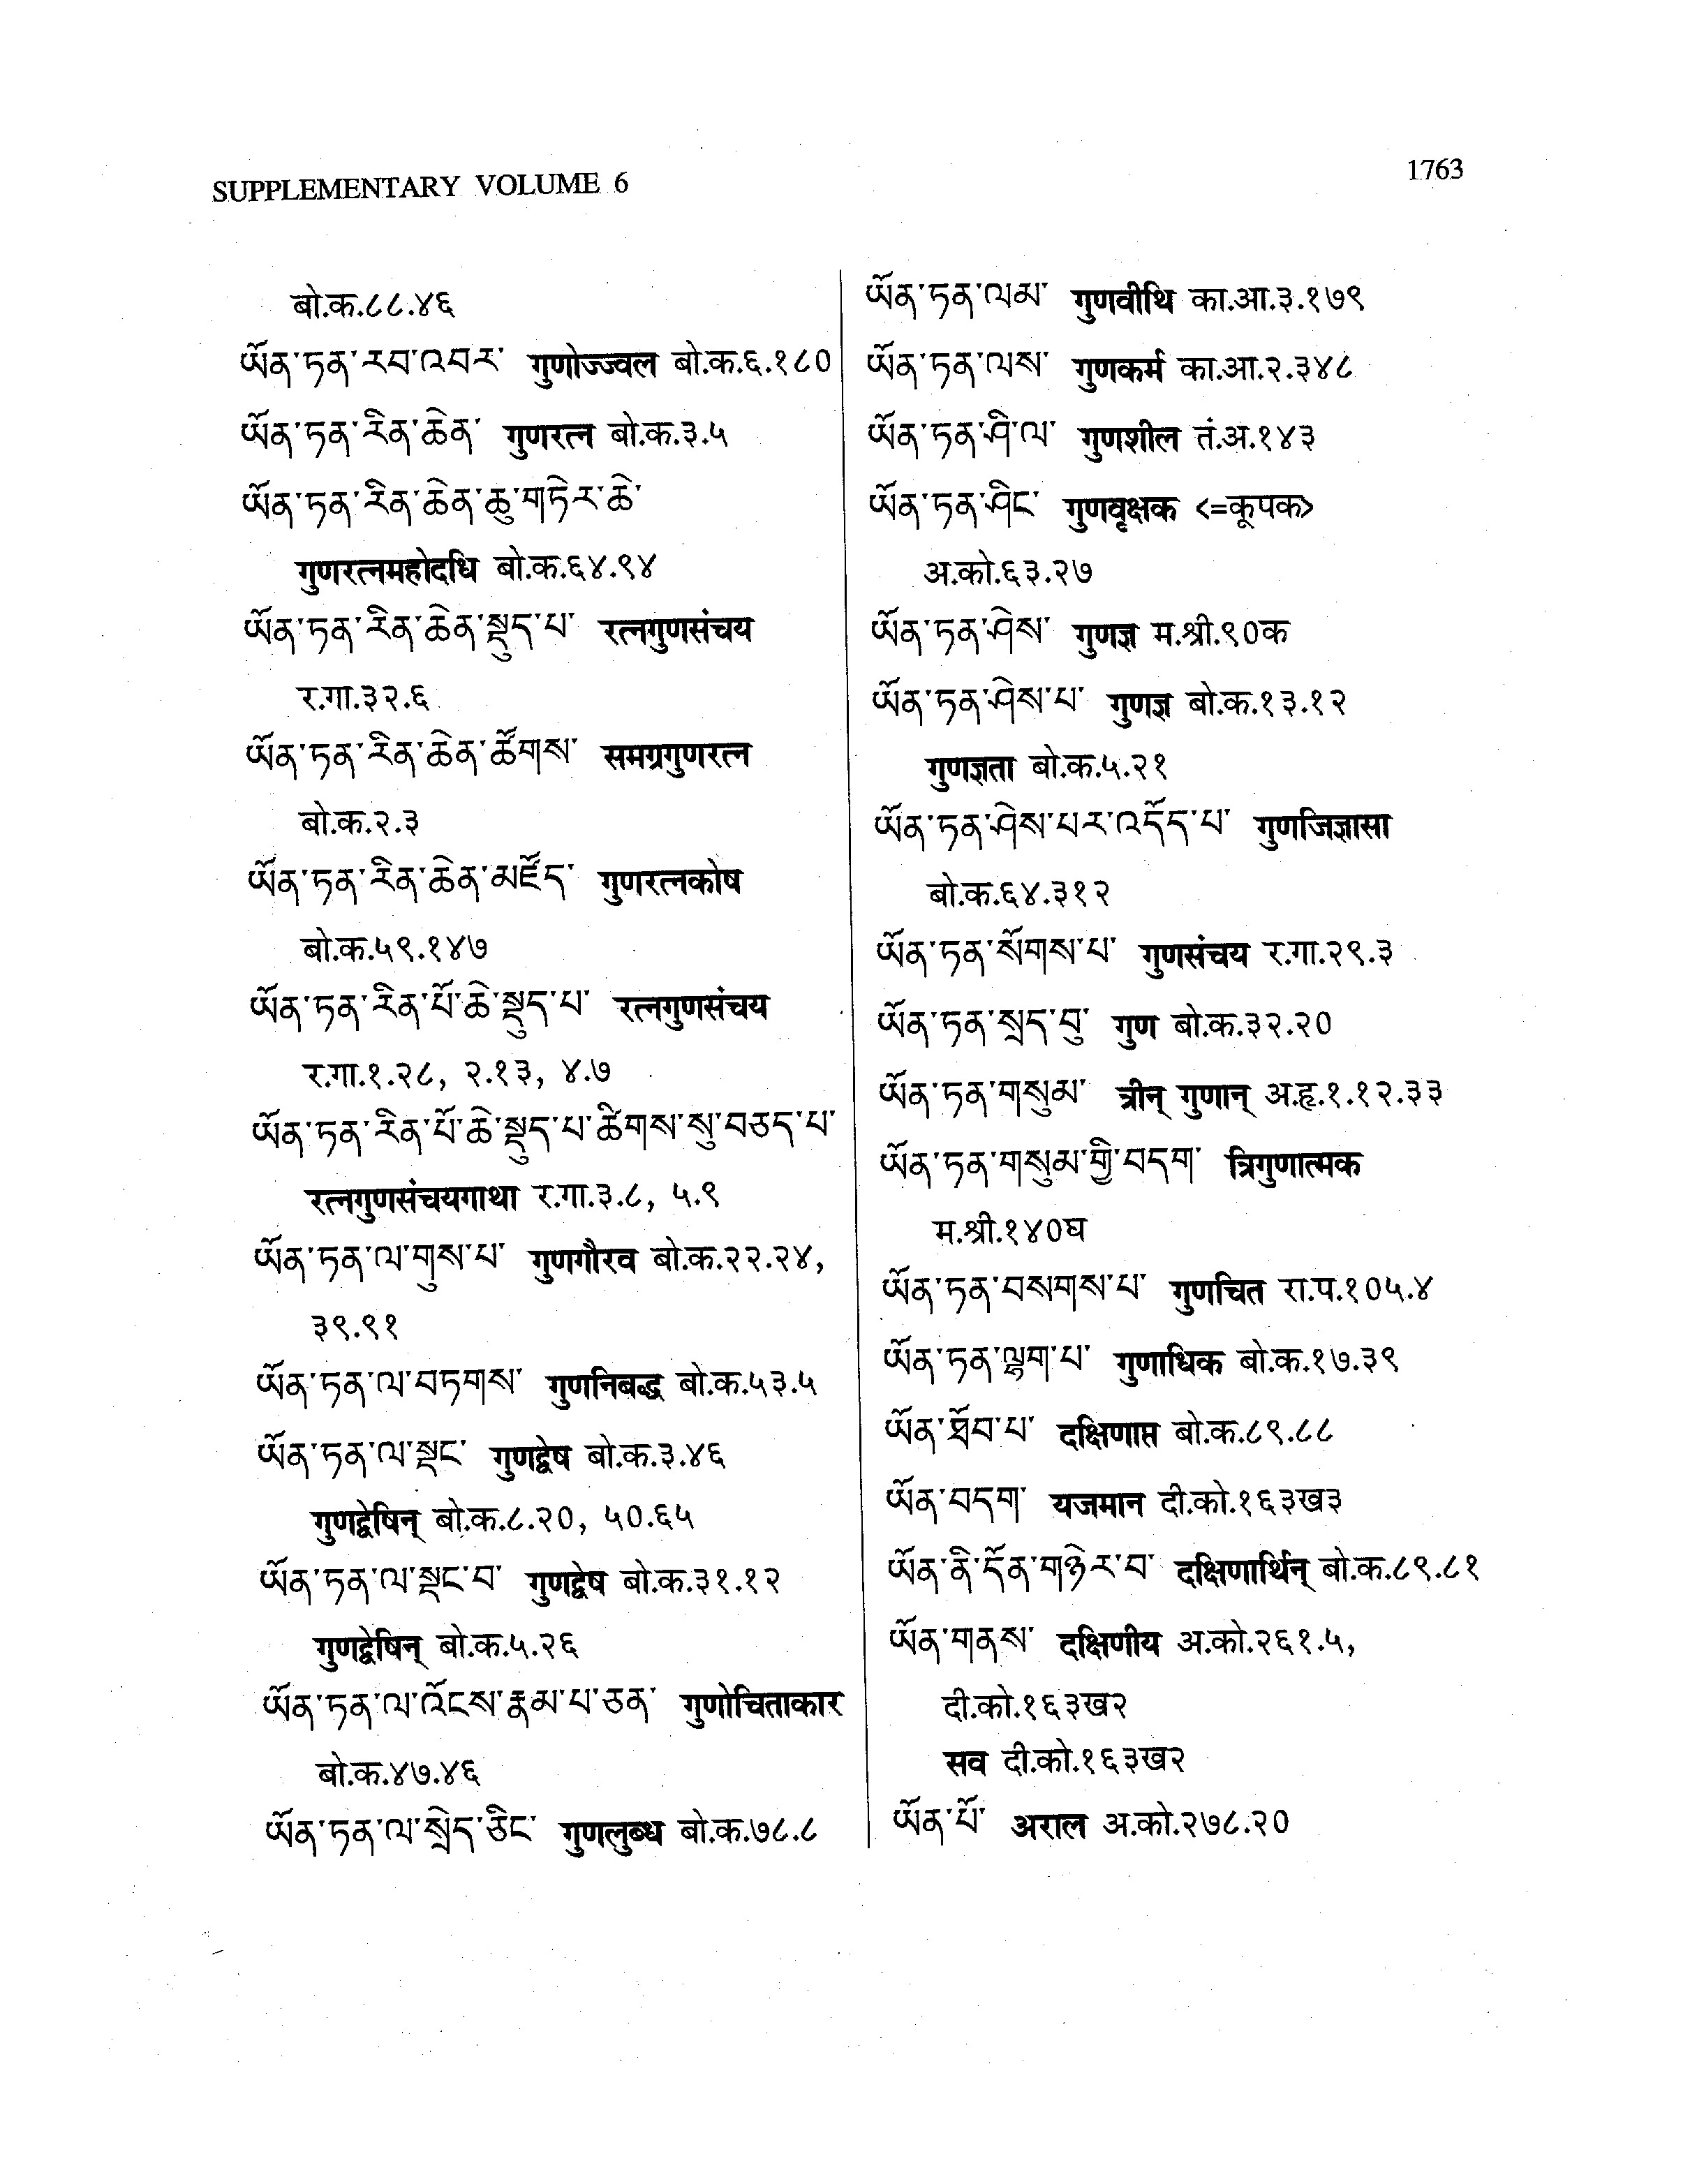 SUPPLEMENTARY VOLUME 6
1763
बो.क.८८.४६
ཡོན་ཏན་རབ་འབར་ गुणोज्ज्वल बो.क.६.१८०
ཡོན་ཏན་རིན་ཆེན་ गुणरत्न बो.क.३.५
ཡོན་ཏན་རིན་ཆེན་ཆུ་གཏེར་ཆེ་
गुणरत्नमहोदधि बो.क.६४.९४
ཡོན་ཏན་རིན་ཆེན་སྡུད་པ་ रत्नगुणसंचय
र.गा.३२.६
ཡོན་ཏན་རིན་ཆེན་ཚོགས་ समग्रगुणरत्न
बो.क.२.३
ཡོན་ཏན་རིན་ཆེན་མཛོད་ गुणरत्नकोष
बो.क.५९.१४७
ཡོན་ཏན་རིན་པོ་ཆེ་སྡུད་པ་ रत्नगुणसंचय
र.गा.१.२८, २.१३, ४.७
ཡོན་ཏན་རིན་པོ་ཆེ་སྡུད་པ་ཚིགས་སུ་བཅད་པ་
रत्नगुणसंचयगाथा र.गा.३.८, ५.९
ཡོན་ཏན་ལ་གུས་པ་ गुणगौरव बो.क.२२.२४,
३९.९१
ཡོན་ཏན་ལ་བཏགས་ गुणनिबद्ध बो.क.५३.५
ཡོན་ཏན་ལ་སྡང་ गुणद्वेष बो.क.३.४६
गुणद्वेषिन् बो.क.८.२०, ५०.६५
ཡོན་ཏན་ལ་སྡང་བ་ गुणद्वेष बो.क.३१.१२
गुणद्वेषिन् बो.क.५.२६
ཡོན་ཏན་ལ་འོངས་རྣམ་པ་ཅན་ गुणोचिताकार
बो.क.४७.४६
ཡོན་ཏན་ལ་སྲེད་ཅིང་ गुणलुब्ध बो.क.७८.८
ཡོན་ཏན་ལམ་ गुणवीथि का.आ.३.१७९
ཡོན་ཏན་ལས་ गुणकर्म का.आ.२.३४८
ཡོན་ཏན་ཤི་ལ་ गुणशील तं.अ.१४३
ཡོན་ཏན་ཤིང་ गुणवृक्षक <=कूपक>
अ.को.६३.२७
ཡོན་ཏན་ཤེས་ गुणज्ञ म.श्री.९०क
ཡོན་ཏན་ཤེས་པ་ गुणज्ञ बो.क.१३.१२
गुणज्ञता बो.क.५.२१
ཡོན་ཏན་ཤེས་པར་འདོད་པ་ गुणजिज्ञासा
बो.क.६४.३१२
ཡོན་ཏན་སོགས་པ་ गुणसंचय र.गा.२९.३
ཡོན་ཏན་སྲད་བུ་ गुण बो.क.३२.२०
ཡོན་ཏན་གསུམ་ त्रीन् गुणान् अ.हृ.१.१२.३३
ཡོན་ཏན་གསུམ་གྱི་བདག་ त्रिगुणात्मक
म.श्री.१४०घ
ཡོན་ཏན་བསགས་པ་ गुणचित रा.प.१०५.४
ཡོན་ཏན་ལྷག་པ་ गुणाधिक बो.क.१७.३९
ཡོན་ཐོབ་པ་ दक्षिणाप्त बो.क.८९.८८
ཡོན་བདག་ यजमान दी.को.१६३ख३
ཡོན་ནི་དོན་གཉེར་བ་ दक्षिणार्थिन् बो.क.८९.८१
ཡོན་གནས་ दक्षिणीय अ.को.२६१.५,
दी.को.१६३ख२
सव दी.को.१६३ख२
ཡོན་པོ་ अराल अ.को.२७८.२०